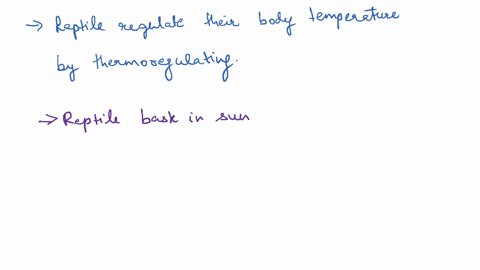 → Reptile regulate their body temperature
by thermoregulating.
→ Reptile bask in sun